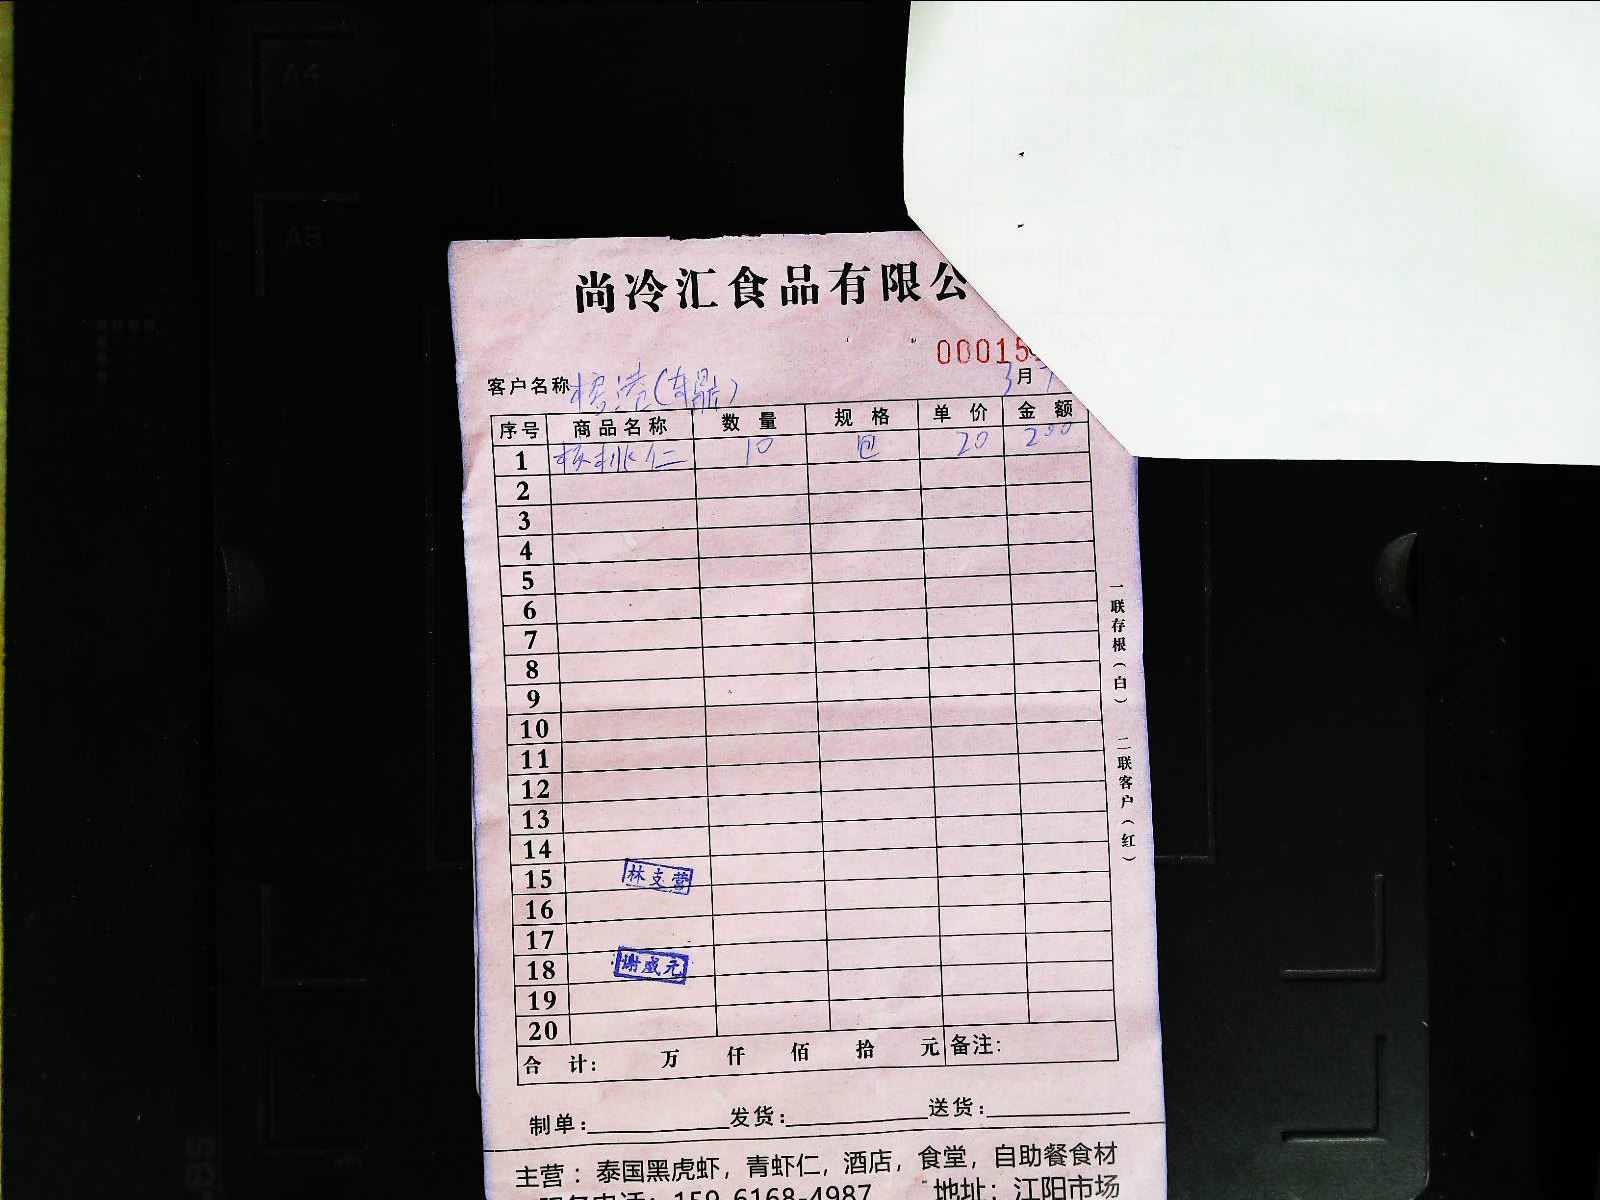 A4
A5
尚冷汇食品有限公
00015
客户名称 杨港(东鼎) 3月
序号 商品名称 数量 规格 单价 金额
1 核桃仁 10 包 20 200
2
3
4
5
6
7
8
9
10
11
12
13
14
15 林支营
16
17
18 谢盛元
19
20
合计: 万 仟 佰 拾 元 备注:
一联存根(白) 二联客户(红)
制单: 发货: 送货:
主营: 泰国黑虎虾, 青虾仁, 酒店, 食堂, 自助餐食材
服务电话: 159-6168-4987 地址: 江阳市场
B5